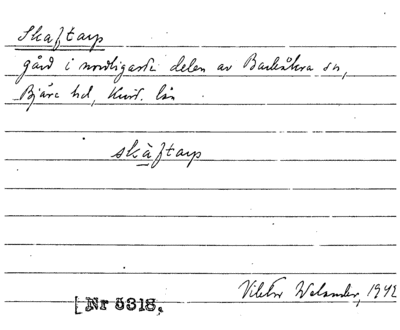 Skaftarp
gård i nordligaste delen av Barkåkra sn,
Bjäre hd, Krist. län
skàftarp
Viktor Welander, 1942
[Nr 5318,